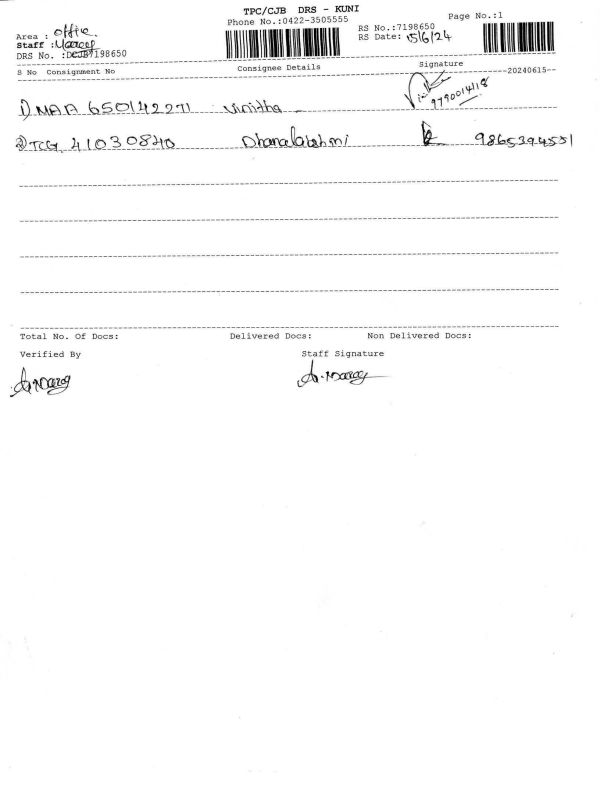 TPC/CJB DRS - KUNI
Phone No.:0422-3505555
Page No.:1
Area : office.
RS No.:7198650
Staff :
RS Date: 15/6/24
DRS No. :DCJB7198650
S No Consignment No Consignee Details Signature
--20240615--
1) MAA 650142271 Vinitha 9790014118
2) TCG 41030840 Dhanalakshmi 9865394551
Total No. Of Docs: Delivered Docs: Non Delivered Docs:
Verified By Staff Signature